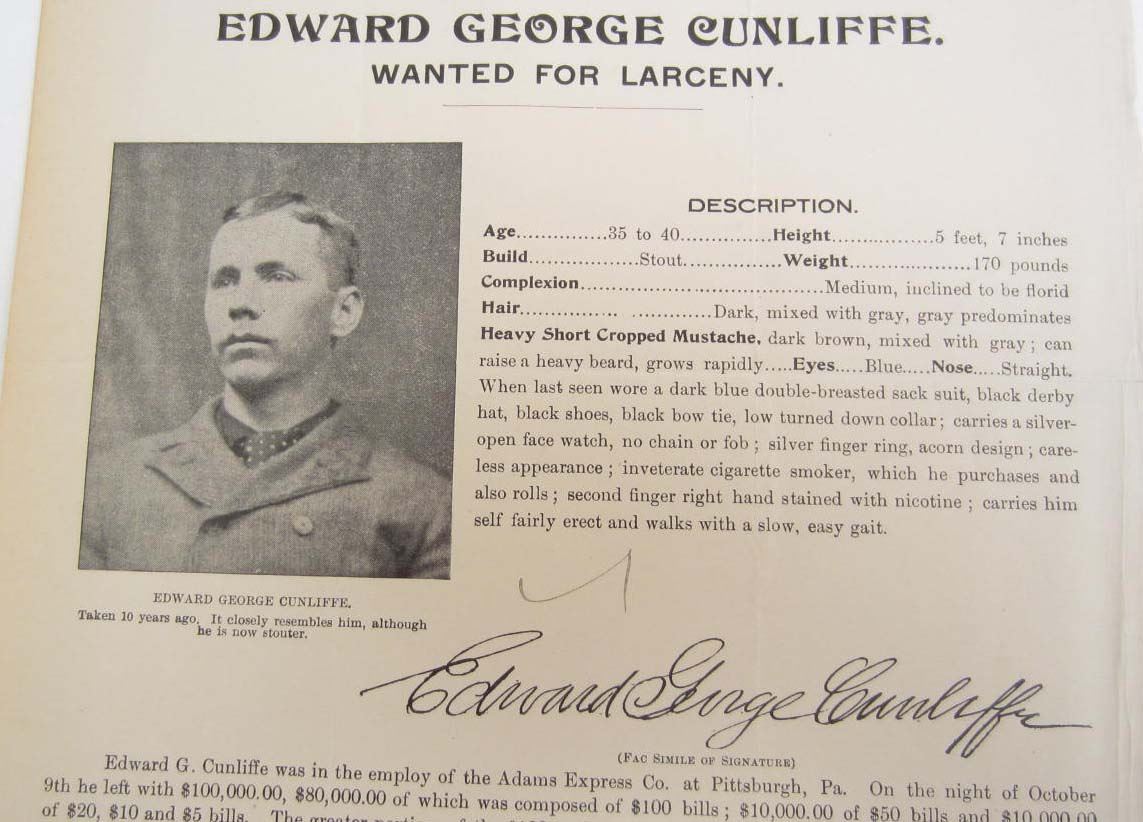 EDWARD GEORGE CUNLIFFE.
WANTED FOR LARCENY.
DESCRIPTION.
Age..............35 to 40...............Height.................5 feet, 7 inches
Build..................Stout................Weight....................170 pounds
Complexion......................................Medium, inclined to be florid
Hair................ .............Dark, mixed with gray, gray predominates
Heavy Short Cropped Mustache, dark brown, mixed with gray; can
raise a heavy beard, grows rapidly.....Eyes.....Blue.....Nose.....Straight.
When last seen wore a dark blue double-breasted sack suit, black derby
hat, black shoes, black bow tie, low turned down collar; carries a silver-
open face watch, no chain or fob; silver finger ring, acorn design; care-
less appearance; inveterate cigarette smoker, which he purchases and
also rolls; second finger right hand stained with nicotine; carries him
self fairly erect and walks with a slow, easy gait.
EDWARD GEORGE CUNLIFFE.
Taken 10 years ago. It closely resembles him, although
he is now stouter.
Edward George Cunliffe
(FAC SIMILE OF SIGNATURE)
Edward G. Cunliffe was in the employ of the Adams Express Co. at Pittsburgh, Pa. On the night of October
9th he left with $100,000.00, $80,000.00 of which was composed of $100 bills; $10,000.00 of $50 bills and $10,000.00
of $20, $10 and $5 bills. The greater